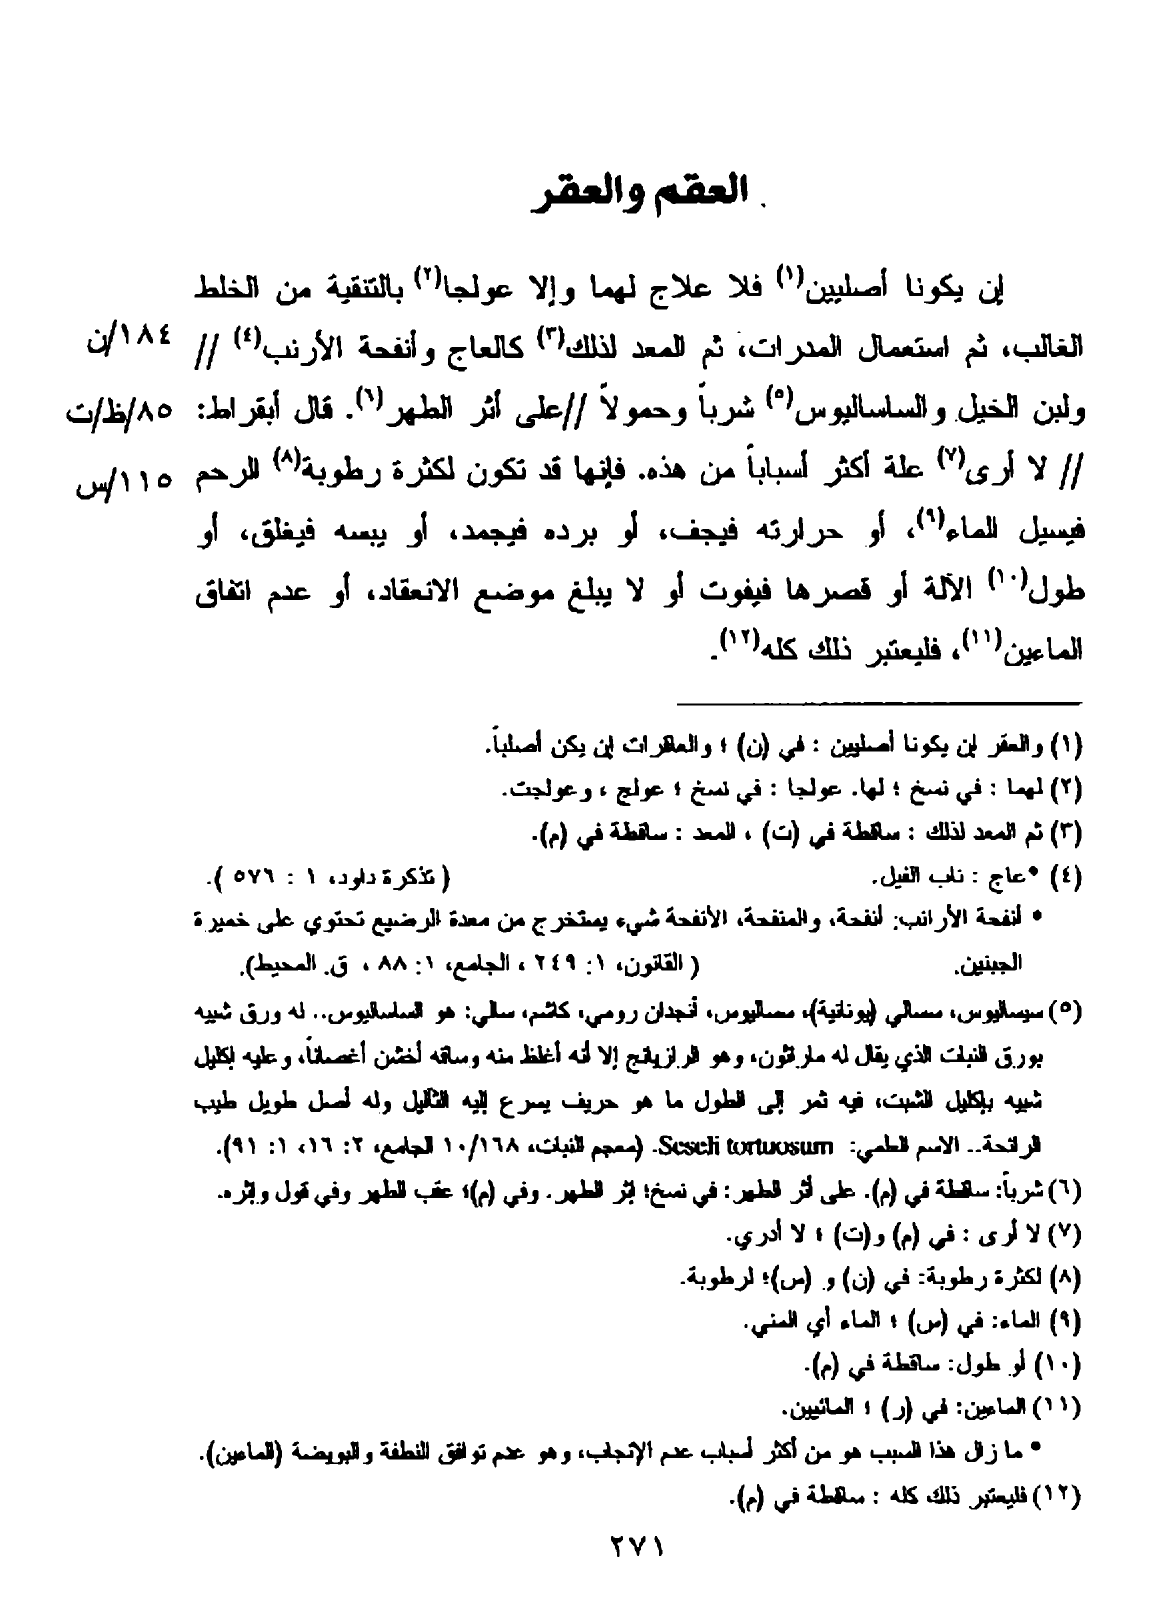 العقم والعقر
إن يكونا أصليين(١) فلا علاج لهما وإلا عولجا(٢) بالتنقية من الخلط
الغالب، ثم استعمال المدرات، ثم المعد لذلك(٣) كالعاج وأنفحة الأرنب(٤) // ١٨٤/ن
ولبن الخيل والساساليوس(٥) شرباً وحمولاً //على أثر الطهر(٦). قال أبقراط: ٨٥/ظ/ت
// لا أرى(٧) علة أكثر أسباباً من هذه. فإنها قد تكون لكثرة رطوبة(٨) الرحم ١١٥/س
فيسيل الماء(٩)، أو حرارته فيجف، أو برده فيجمد، أو يبسه فيغلق، أو
طول(١٠) الآلة أو قصرها فيفوت أو لا يبلغ موضع الانعقاد، أو عدم اتفاق
الماءين(١١)، فليعتبر ذلك كله(١٢).
(١) والعقر إن يكونا أصليين : في (ن) ؛ والعاقرات إن يكن أصلياً.
(٢) لهما : في نسخ ؛ لها. عولجا : في نسخ ؛ عولج ، وعولجت.
(٣) ثم المعد لذلك : ساقطة في (ت) ، المعد : ساقطة في (م).
(٤) •عاج : ناب الفيل. ( تذكرة داود، ١ : ٥٧٦ ).
• أنفحة الأرانب: أنفحة، والمنفحة، الأنفحة شيء يستخرج من معدة الرضيع تحتوي على خميرة
الجبنين. ( القانون، ١: ٢٤٩ ، الجامع، ١: ٨٨ ، ق. المحيط).
(٥) سيساليوس، سسالي (يونانية)، سساليوس، أنجدان رومي، كاشم، سالي: هو الساساليوس.. له ورق شبيه
بورق النبات الذي يقال له ماراثون، وهو الرازيانج إلا أنه أغلظ منه وساقه أخشن أغصاناً، وعليه إكليل
شبيه بإكليل الشبت، فيه ثمر إلى الطول ما هو حريف يسرع إليه التآليل وله أصل طويل طيب
الرائحة.. الاسم العلمي: Seseli tortuosum. (معجم النبات، ١٠/١٦٨ الجامع، ٢: ١٦، ١: ٩١).
(٦) شرباً: ساقطة في (م). على أثر الطهر: في نسخ؛ إثر الطهر. وفي (م)؛ عقب الطهر وفي قول وإثره.
(٧) لا أرى : في (م) و(ت) ؛ لا أدري.
(٨) لكثرة رطوبة: في (ن) و (س)؛ لرطوبة.
(٩) الماء: في (س) ؛ الماء أي المني.
(١٠) أو طول: ساقطة في (م).
(١١) الماءين: في (ر) ؛ المائيين.
• ما زال هذا السبب هو من أكثر أسباب عدم الإنجاب، وهو عدم توافق النطفة والبويضة (الماءين).
(١٢) فليعتبر ذلك كله : ساقطة في (م).
٢٧١